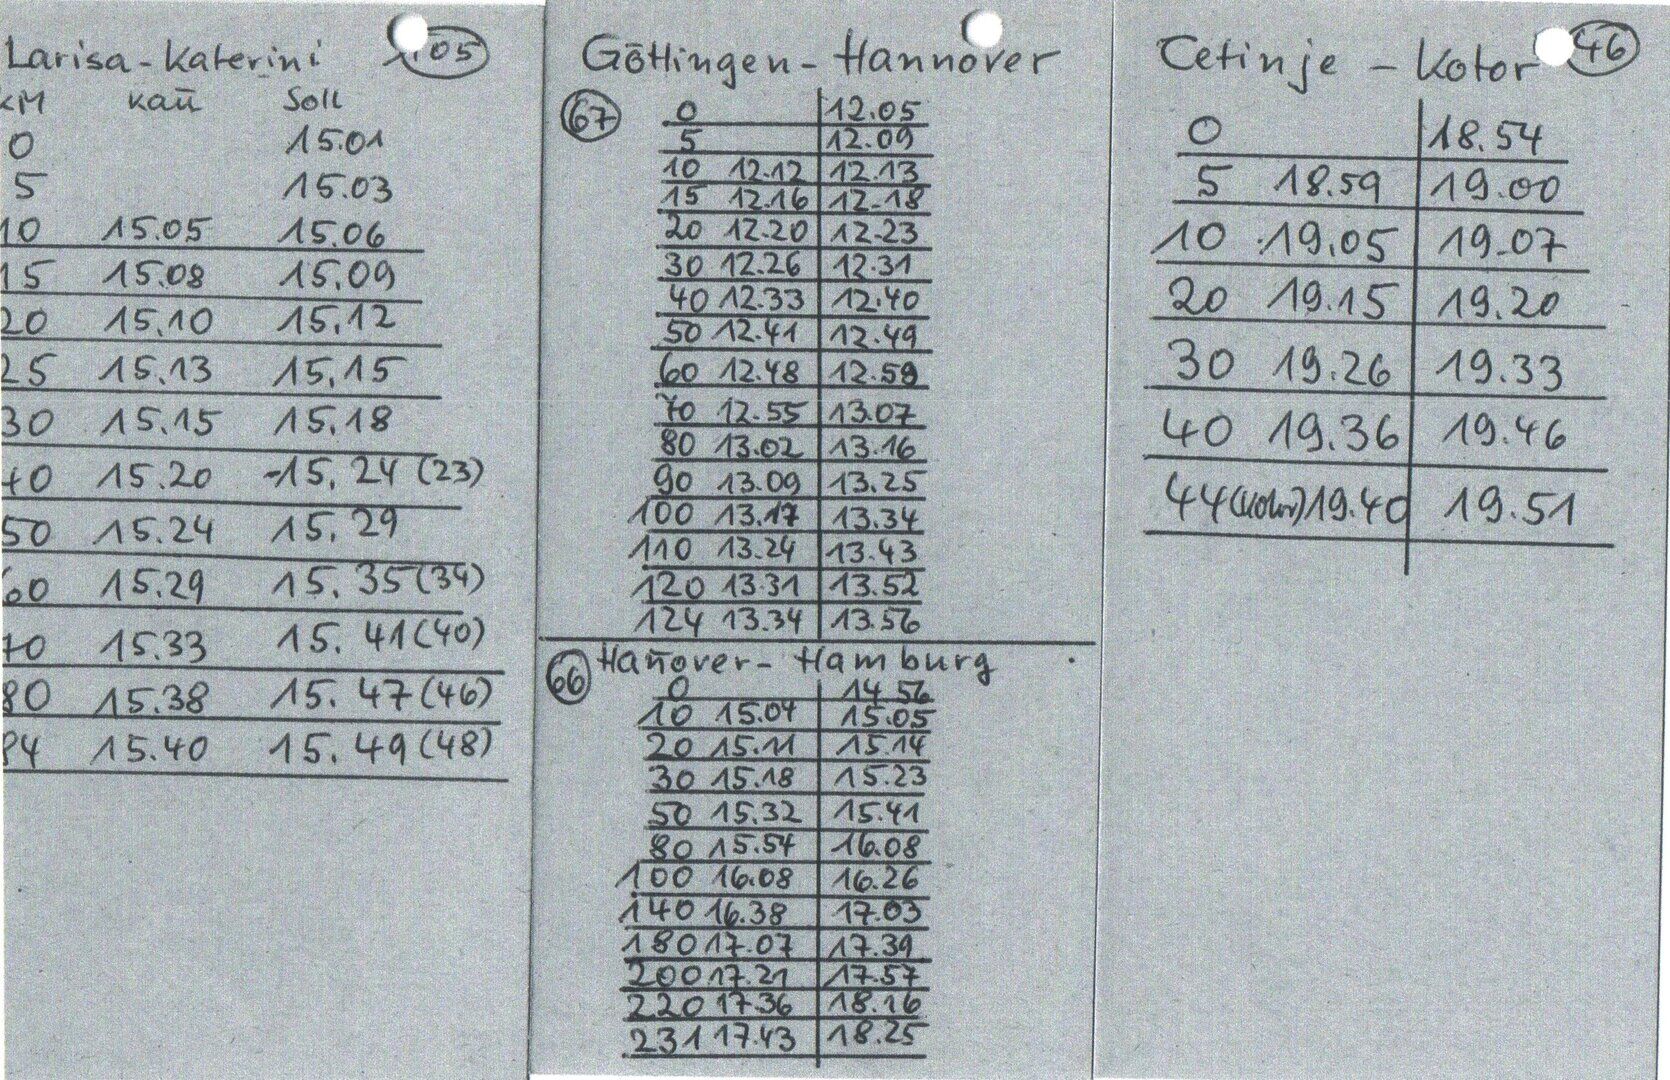 Larisa - Katerini 105
KM kañ Soll
0 15.01
5 15.03
10 15.05 15.06
15 15.08 15.09
20 15.10 15.12
25 15.13 15.15
30 15.15 15.18
40 15.20 15.24 (23)
50 15.24 15.29
60 15.29 15.35 (34)
70 15.33 15.41 (40)
80 15.38 15.47 (46)
84 15.40 15.49 (48)
Göttingen - Hannover
67
0 12.05
5 12.09
10 12.12 12.13
15 12.16 12.18
20 12.20 12.23
30 12.26 12.31
40 12.33 12.40
50 12.41 12.49
60 12.48 12.58
70 12.55 13.07
80 13.02 13.16
90 13.09 13.25
100 13.17 13.34
110 13.24 13.43
120 13.31 13.52
124 13.34 13.56
66 Hañover - Hamburg
0 14.56
10 15.04 15.05
20 15.11 15.14
30 15.18 15.23
50 15.32 15.41
80 15.54 16.08
100 16.08 16.26
140 16.38 17.03
180 17.07 17.39
200 17.21 17.57
220 17.36 18.16
231 17.43 18.25
Cetinje - Kotor 46
0 18.54
5 18.59 19.00
10 19.05 19.07
20 19.15 19.20
30 19.26 19.33
40 19.36 19.46
44 (Kotor) 19.40 19.51